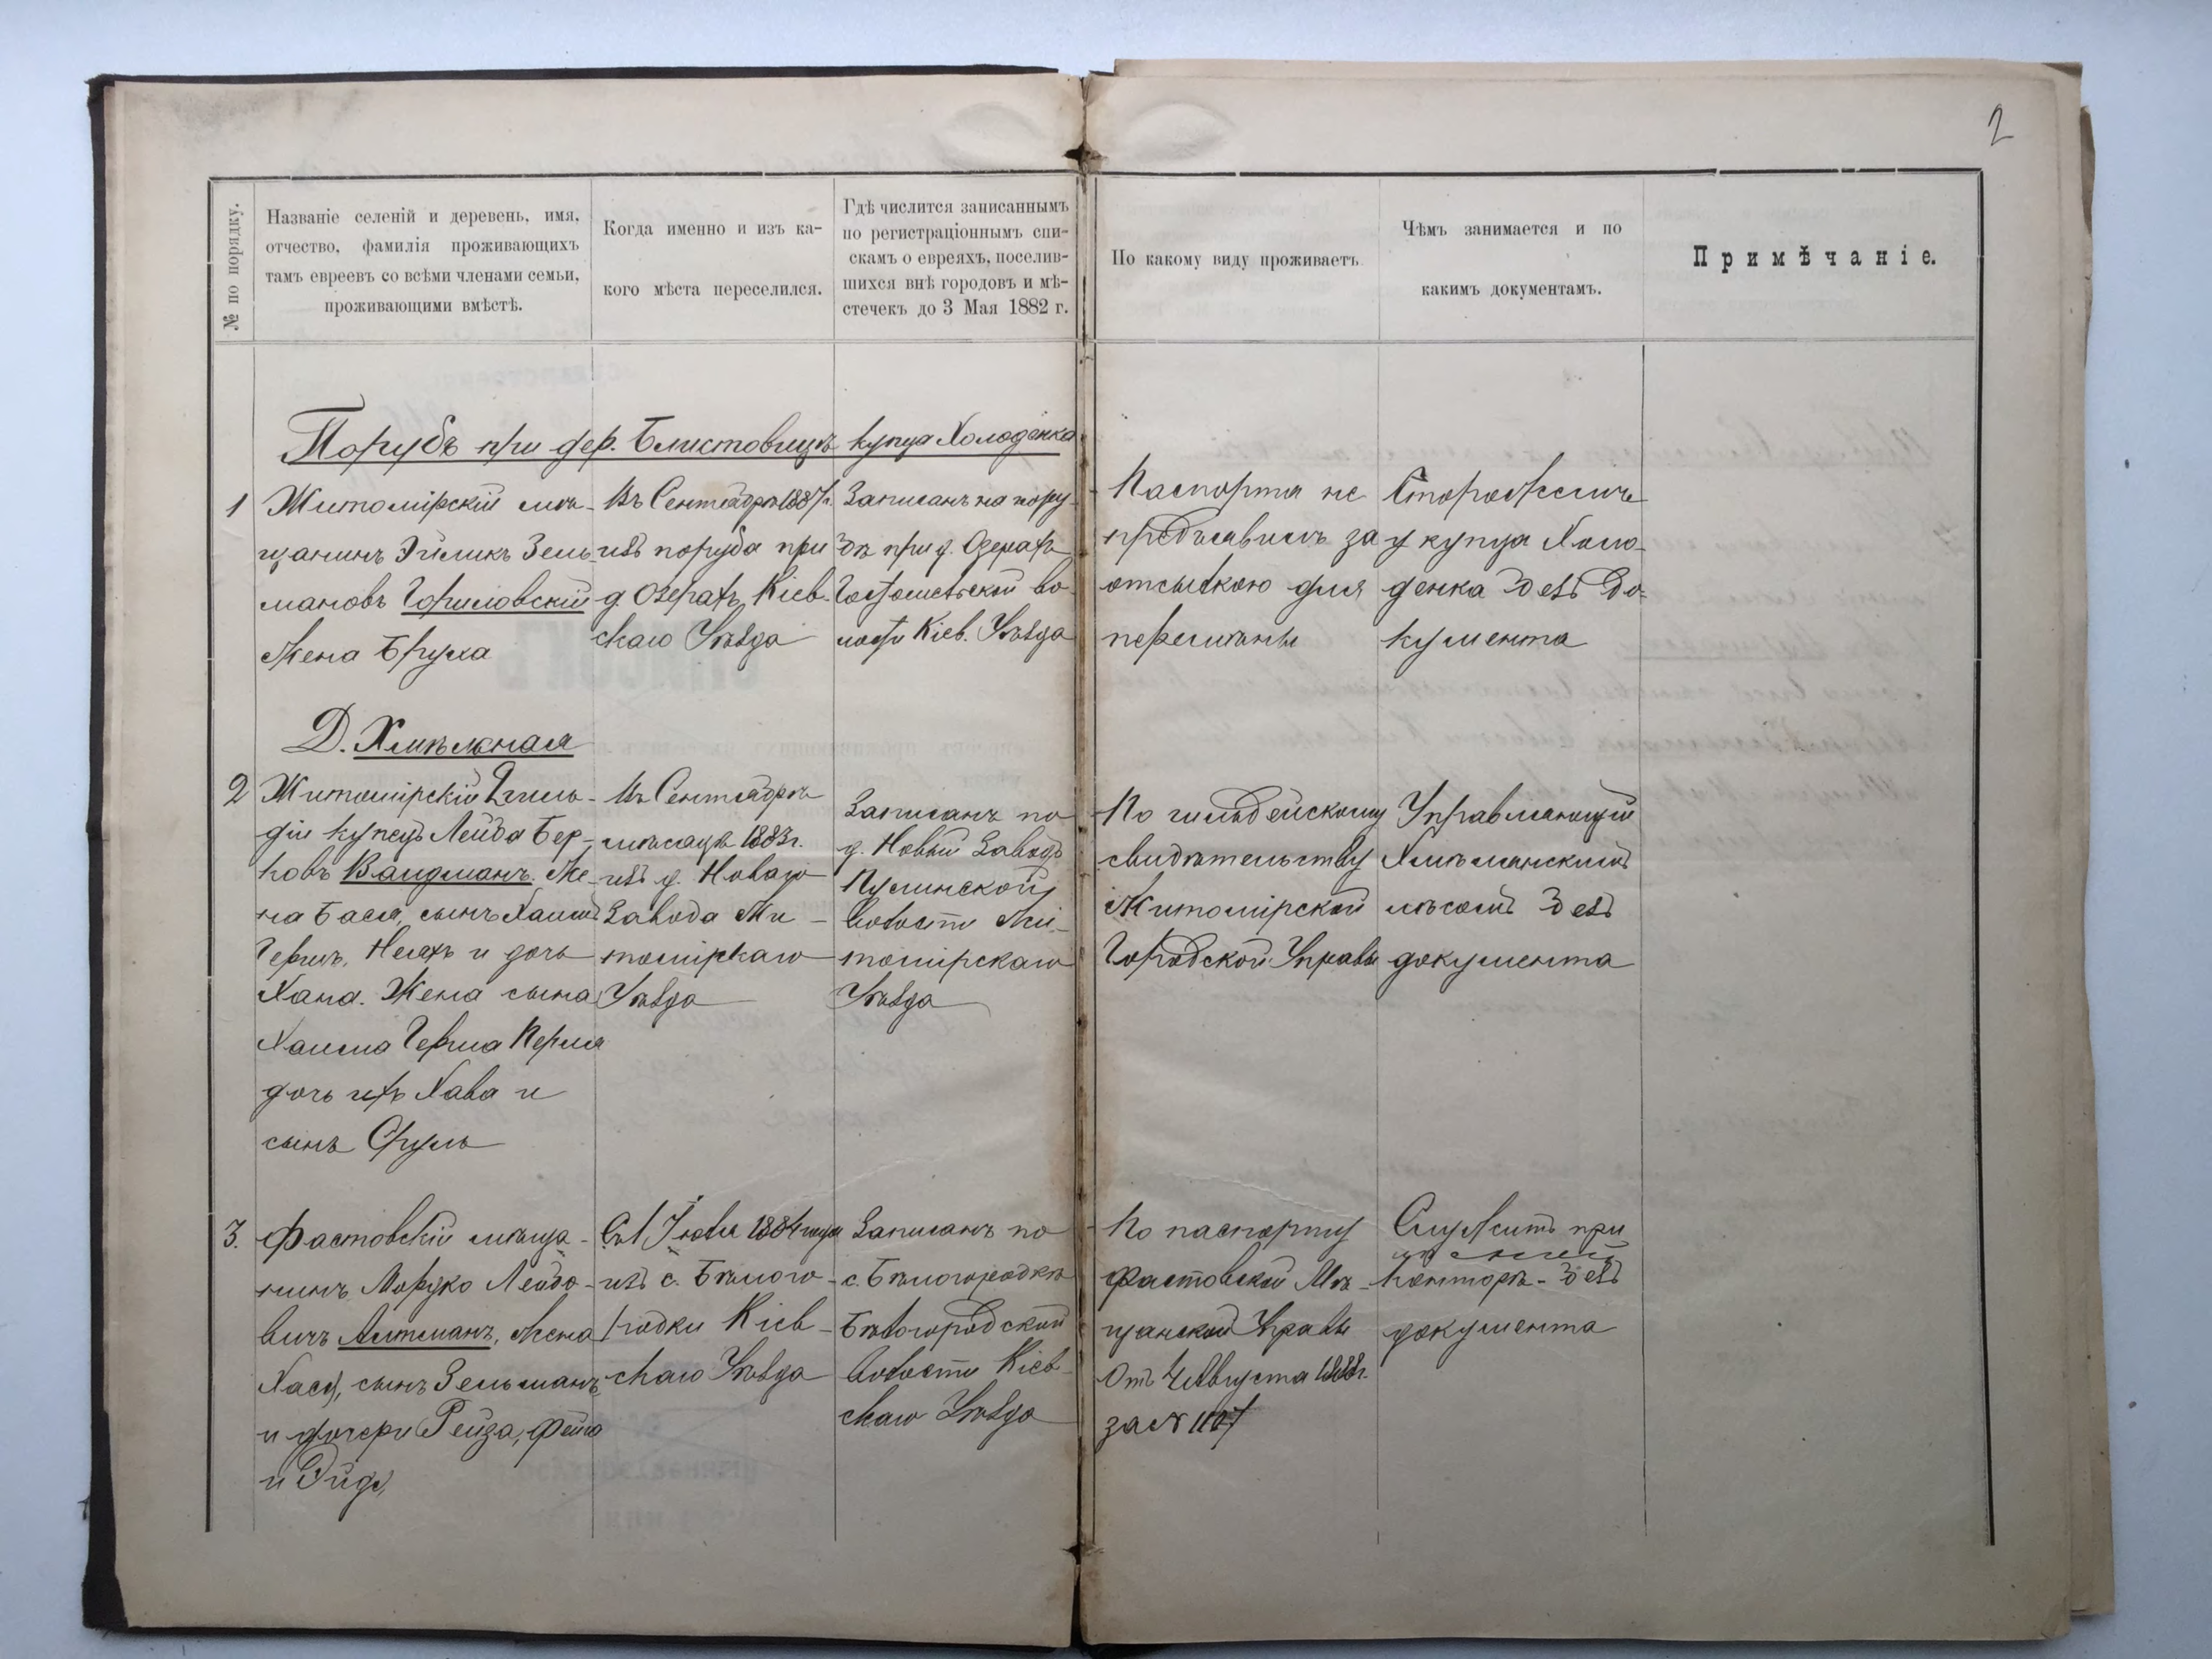 2
№ по порядку.
Названіе селеній и деревень, имя,
отчество, фамилія проживающихъ
тамъ евреевъ со всѣми членами семьи,
проживающими вмѣстѣ.
Когда именно и изъ ка-
кого мѣста переселился.
Гдѣ числится записаннымъ
по регистраціоннымъ спи-
скамъ о евреяхъ, поселив-
шихся внѣ городовъ и мѣ-
стечекъ до 3 Мая 1882 г.
По какому виду проживаетъ
Чѣмъ занимается и по
какимъ документамъ.
Примѣчаніе.
Порубъ при дер. Блиставицѣ купца Холоденка
1
Житомірскій мѣ-
щанинъ Эйликъ Зель-
мановъ Гориловскій
Жена Бруха
Въ Сентябрѣ 1887 г.
изъ поруба при
д. Озерахъ Кіев-
скаго Уѣзда
Записанъ на пору-
бѣ при д. Озерахъ
Гостомельской во-
лости Кіев. Уѣзда
Паспорта не
предъявилъ за
отсылкою для
перемѣны
Сторожемъ
у купца Холо-
денка безъ до-
кумента
Д. Хмѣльная
2
Житомірскій 2 гиль-
діи купецъ Лейба Бер-
ковъ Вайдманъ. Же-
на Бася, сынъ Хаимъ
Гершъ, Нелхъ и дочь
Хана. Жена сына
Хаима Герша Перля
дочь ихъ Хава и
сынъ Сруль
Въ Сентябрѣ
мѣсяцѣ 1883 г.
изъ д. Новаго
Завода Жи-
томірскаго
Уѣзда
Записанъ по
д. Новый Заводъ
Пулинской
Волости Жи-
томірскаго
Уѣзда
По гильдейскому
свидѣтельству
Житомірской
Городской Управы
Управляющій
Хмѣлянскимъ
лѣсомъ безъ
документа
3.
Фастовскій мѣща-
нинъ Мордко Лейбо-
вичъ Альтманъ, жена
Хася, сынъ Зельманъ
и дочери Рейза, Фейга
и Эйдя
Съ 1 Іюля 1884 года
изъ с. Бѣлого-
родки Кіев-
скаго Уѣзда
Записанъ по
с. Бѣлогородкѣ
Бѣлогородской
Волости Кіев-
скаго Уѣзда
По паспорту
Фастовской Мѣ-
щанской Управы
Отъ 4 Августа 1888 г.
за № 1127
Служитъ при
конторѣ безъ
документа